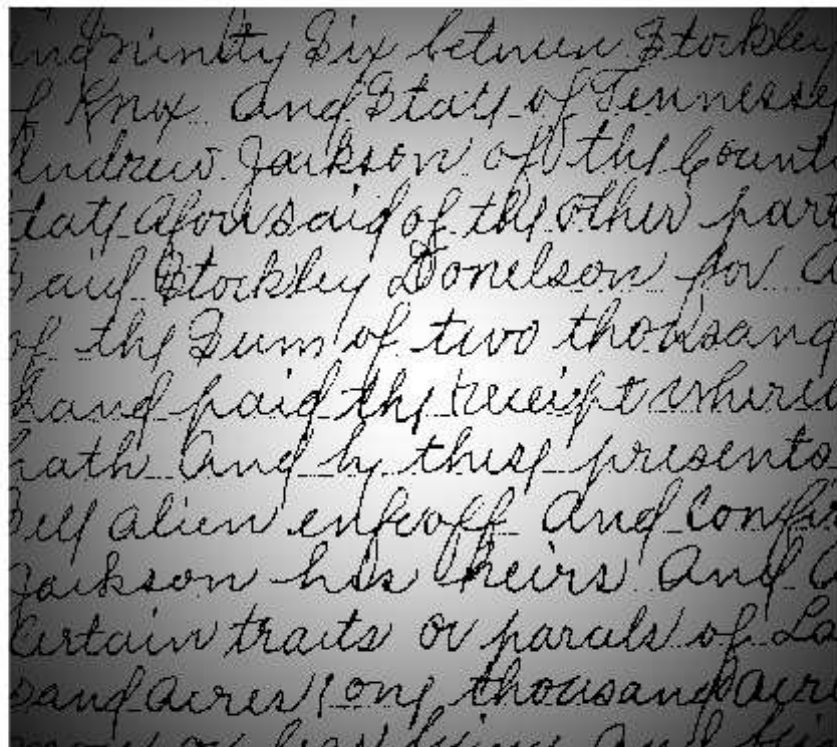 and ninity Six between Stockley
of Knox and State of Tennesse
Andrew Jackson of the Count
State aforesaid of the other part
Said Stockley Donelson for
of the Sum of two thousand
hand paid the receipt where
hath and by these presents
Sell alien enfeoff and Confi
Jackson his heirs and
Certain tracts or parcels of La
sand acres one thousand acre
more or less lying and bei